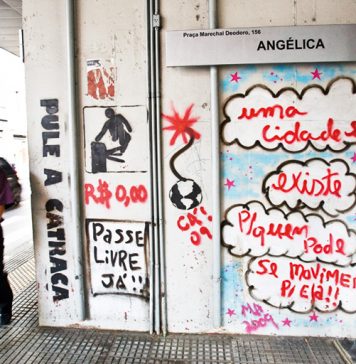 Praça Marechal Deodoro, 156
ANGÉLICA
PULE A CATRACA
R$ 0,00
PASSE
LIVRE
JÁ!!
uma
cidade só
existe
P/quem Pode
Se MOViMEN
P/ELA!!
2009